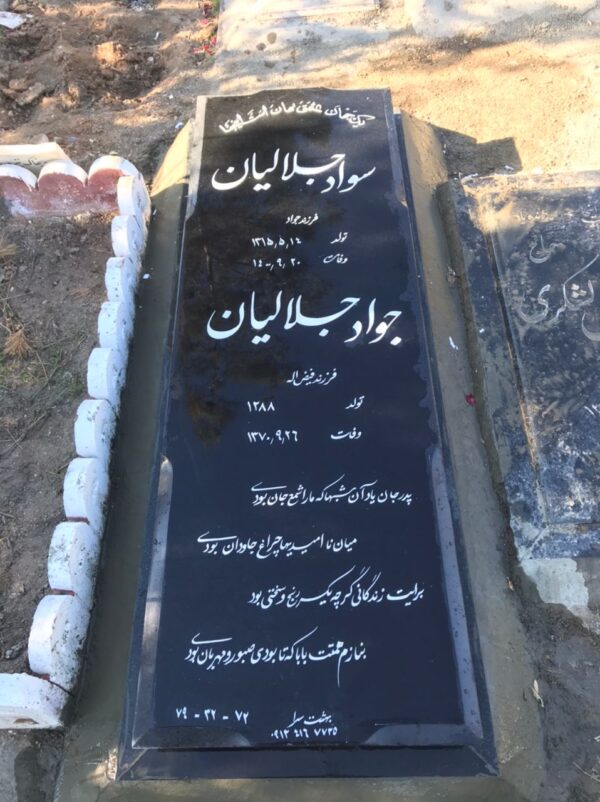 یک جهان عشق نهان است اینجا
سواد جلالیان
فرزند جواد
تولد ۱۳۱۵٫۵٫۱٤
وفات ۱٤۰۰٫۹٫۲۰
جواد جلالیان
فرزند فیض اله
تولد ۱۲۸۸
وفات ۱۳۷۰٫۹٫۲۶
پدر جان یاد آن شبها که ما را شمع جان بودی
میان نا امیدیها چراغ جاودان بودی
برایت زندگانی گر چه یکسر رنج و سختی بود
بنازم همتت بابا که تا بودی صبور و مهربان بودی
۷۹ - ۳۲ - ۷۲
بهشت سرا
۰۹۱۳ ٤۱۶ ۷۷۳۵
لشکری